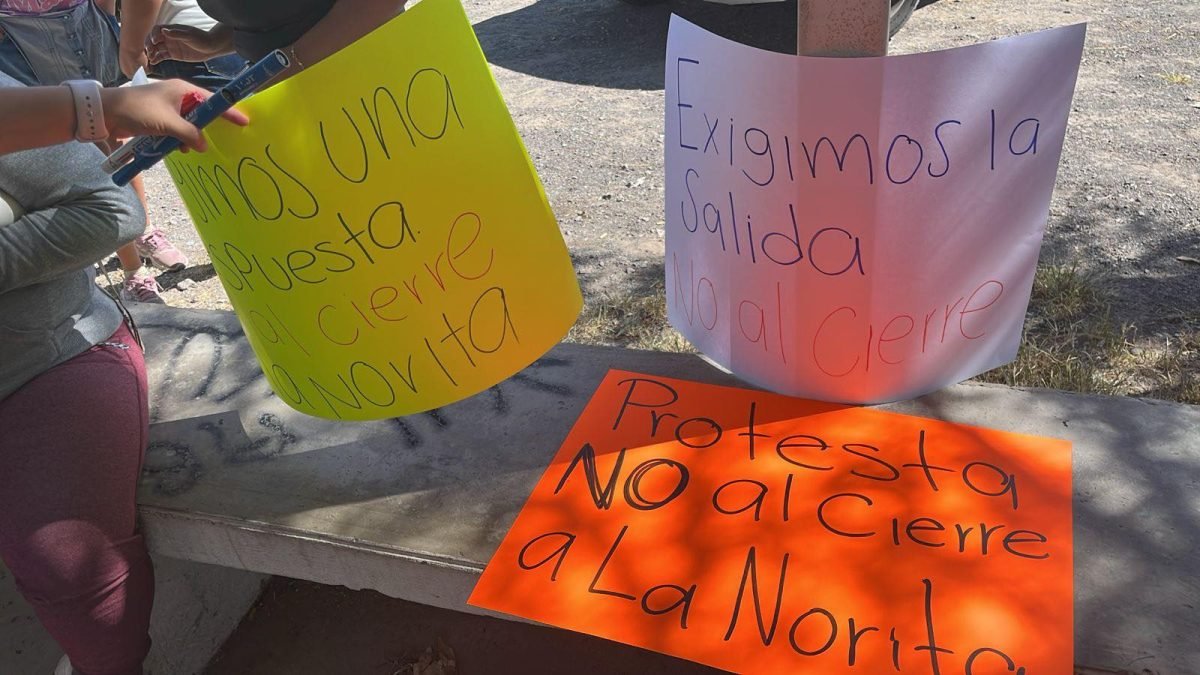 imos una
spuesta
al cierre
a Norita
Exigimos la
Salida
No al cierre
Protesta
NO al cierre
a La Norita